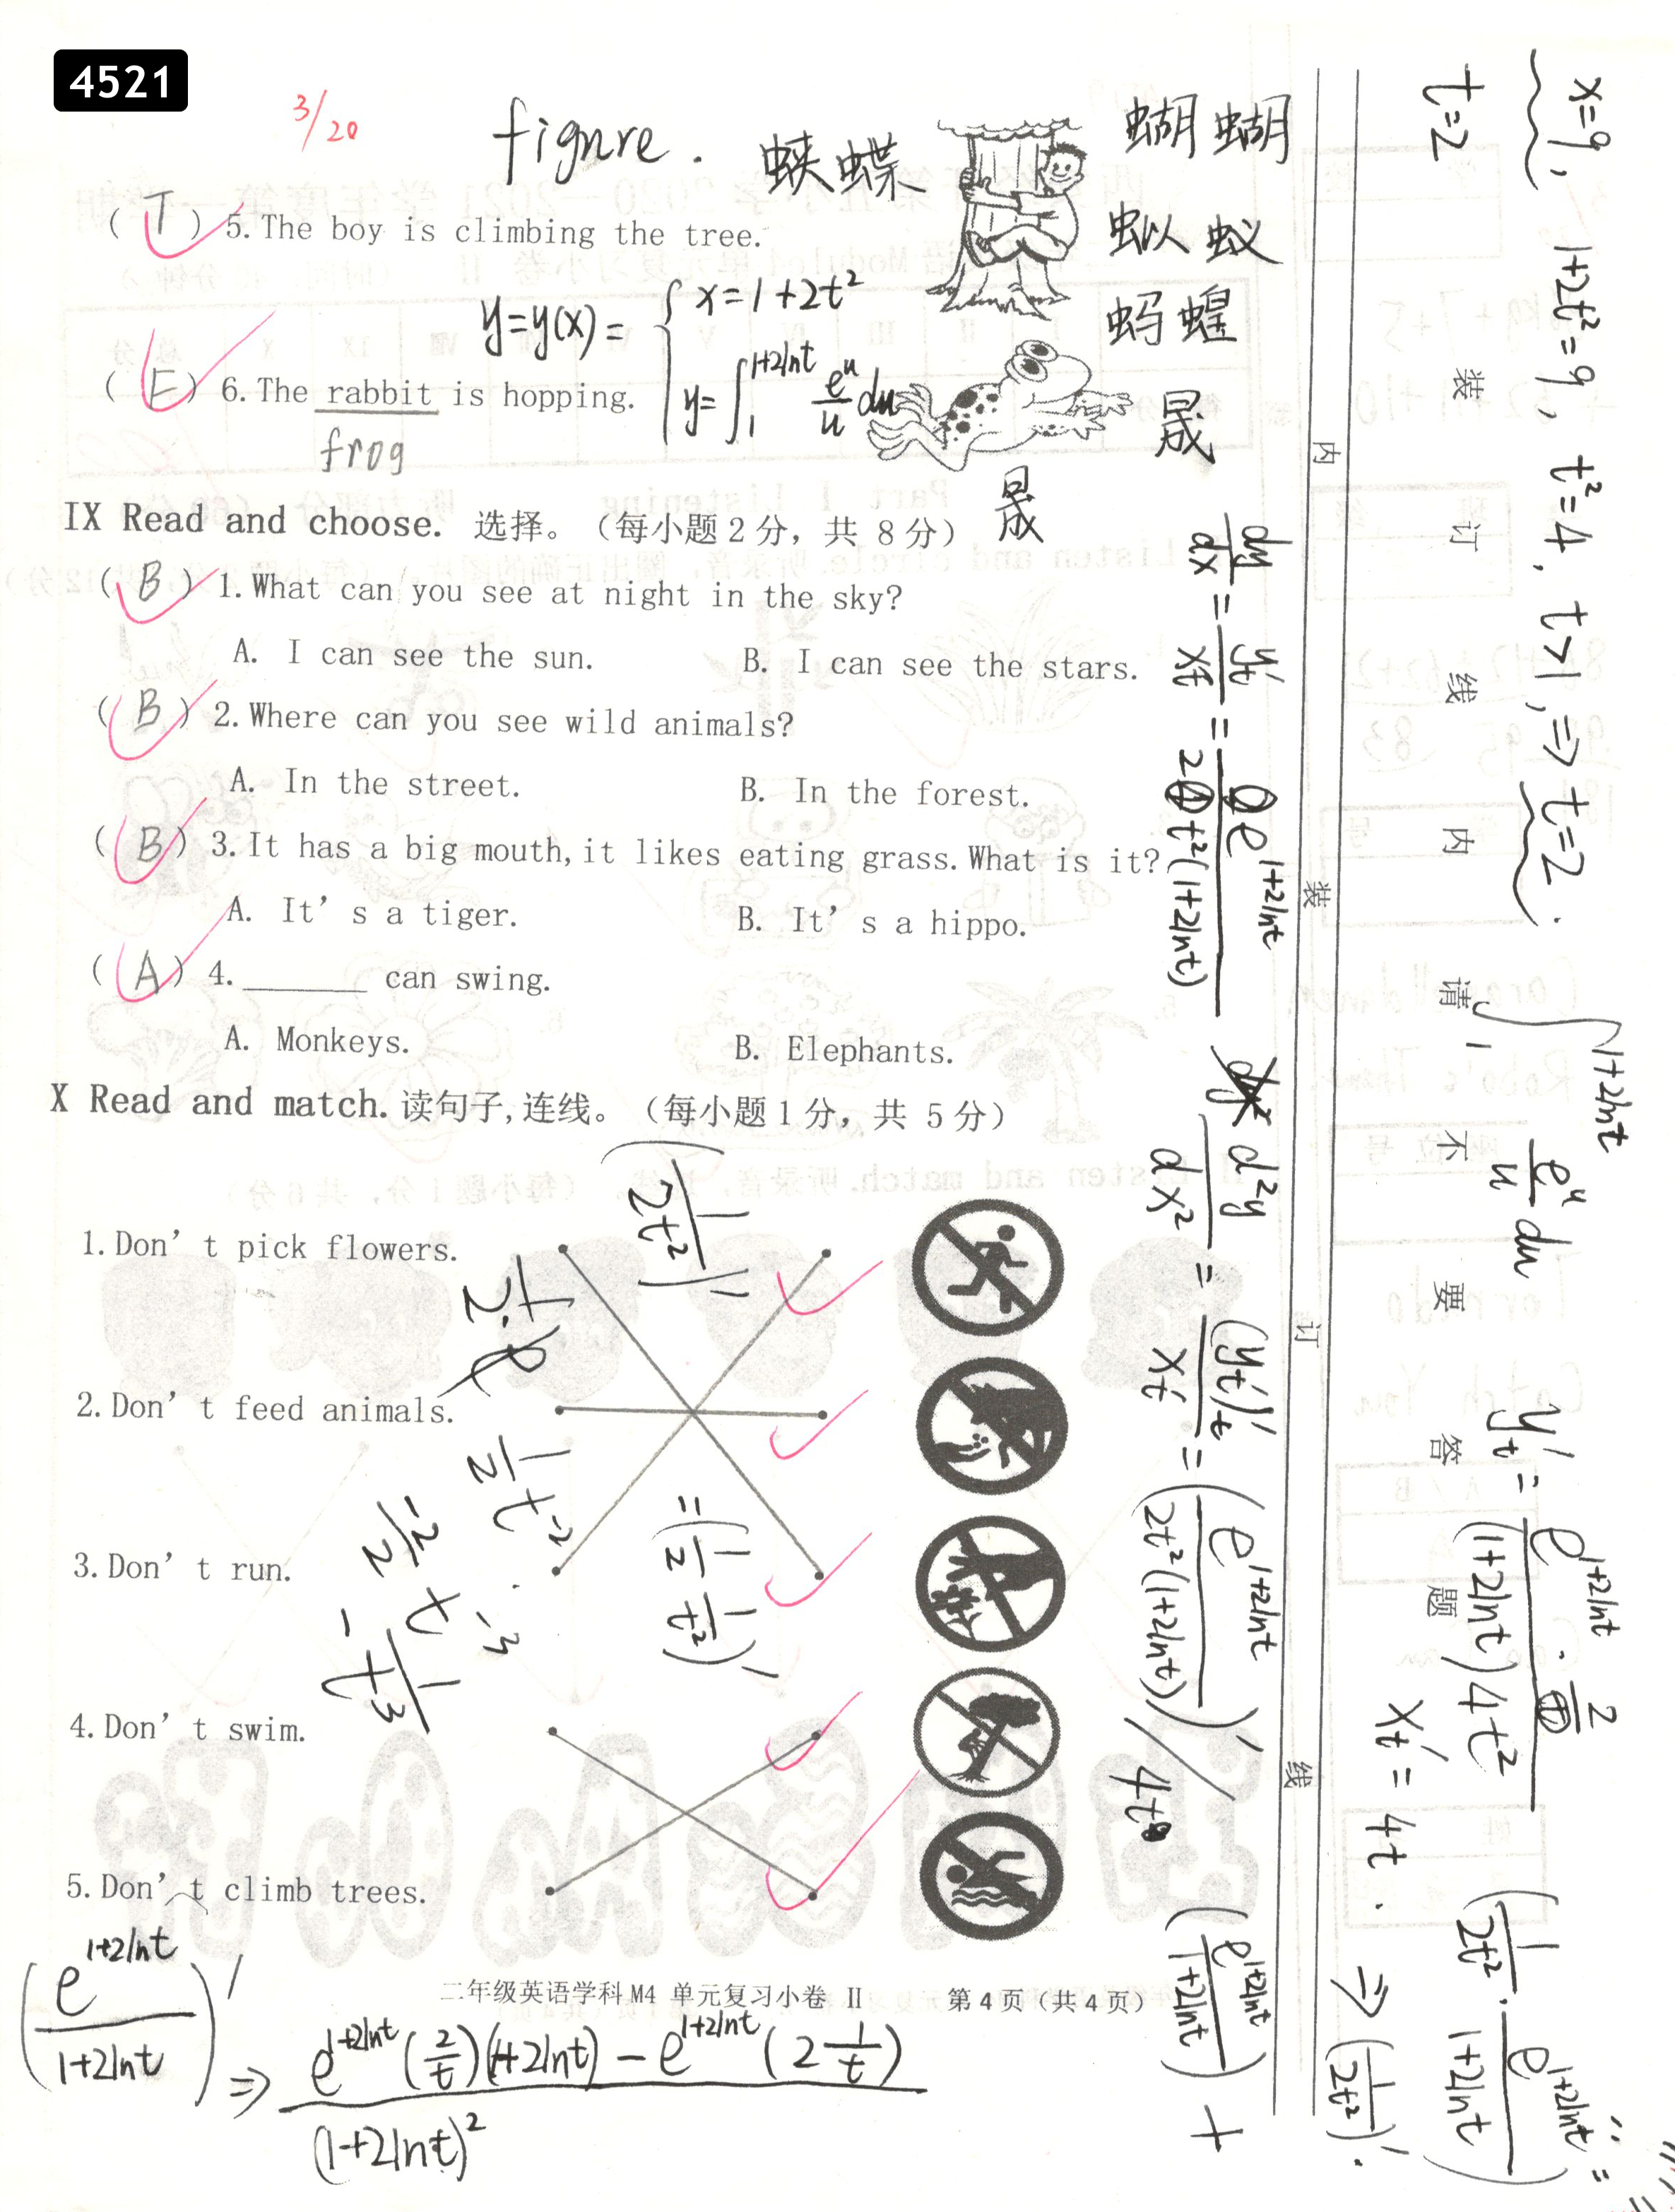 4521
3/20
figure.
蛱蝶
蝴 蝴
蚁 蚁
蚂 蝗
晟
晟
( T ) 5.The boy is climbing the tree.
y=y(x)= { x=1+2t²
y=∫₁^(1+2lnt) e^u/u du
( F ) 6.The rabbit is hopping.
frog
IX Read and choose. 选择。（每小题2分，共 8分）
( B ) 1.What can you see at night in the sky?
A. I can see the sun. B. I can see the stars.
( B ) 2.Where can you see wild animals?
A. In the street. B. In the forest.
( B ) 3.It has a big mouth,it likes eating grass.What is it?
A. It's a tiger. B. It's a hippo.
( A ) 4.______ can swing.
A. Monkeys. B. Elephants.
X Read and match.读句子,连线。（每小题1分，共 5分）
1.Don't pick flowers.
2.Don't feed animals.
3.Don't run.
4.Don't swim.
5.Don't climb trees.
(1/2t²)'
1/2 t⁻²
=(1/2 1/t²)'
-2/2 t⁻³
-1/t³
二年级英语学科M4 单元复习小卷 II 第4页（共4页）
(e^(1+2lnt)/(1+2lnt))' ⇒ (e^(1+2lnt)(2/t)(1+2lnt)-e^(1+2lnt)(2 1/t))/(1+2lnt)²
dy/dx = y't/x't = e^(1+2lnt)/2t²(1+2lnt)
d²y/dx² = (y't)'t/x't = (e^(1+2lnt)/2t²(1+2lnt))'/4t
(e^(1+2lnt)/(1+2lnt)) +
内 装 订 线
装 订 线 内 请 不 要 答 题
x=9, 1+2t²=9, t²=4, t>1, ⇒ t=2.
t=2
∫₁^(1+2lnt) e^u/u du
y't = e^(1+2lnt)·2/(1+2lnt)4t²
x't = 4t.
(1/2t² · e^(1+2lnt)/(1+2lnt))' =
⇒ (1/2t²)'.